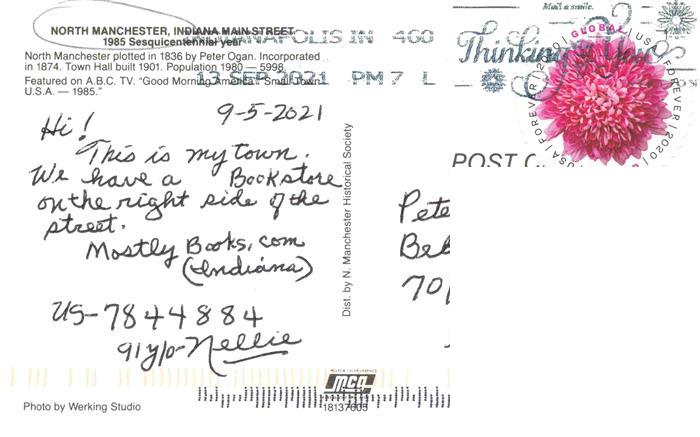 NORTH MANCHESTER, INDIANA MAIN STREET
1985 Sesquicentennial year
North Manchester plotted in 1836 by Peter Ogan. Incorporated
in 1874. Town Hall built 1901. Population 1980 — 5998.
Featured on A.B.C. TV. "Good Morning America" Small Town
U.S.A. — 1985."
INDIANAPOLIS IN 460
13 SEP 2021 PM 7 L
Mail a smile.
Thinking of You
GLOBAL USA FOREVER 2020 USA FOREVER 2020
POST
9-5-2021
Hi!
This is my town.
We have a Bookstore
on the right side of the
street.
Mostly Books, com
(Indiana)
US-7844884
91 y/o- Nellie
Dist. by N. Manchester Historical Society
Pete
Be
70
MCG
18137605
Photo by Werking Studio